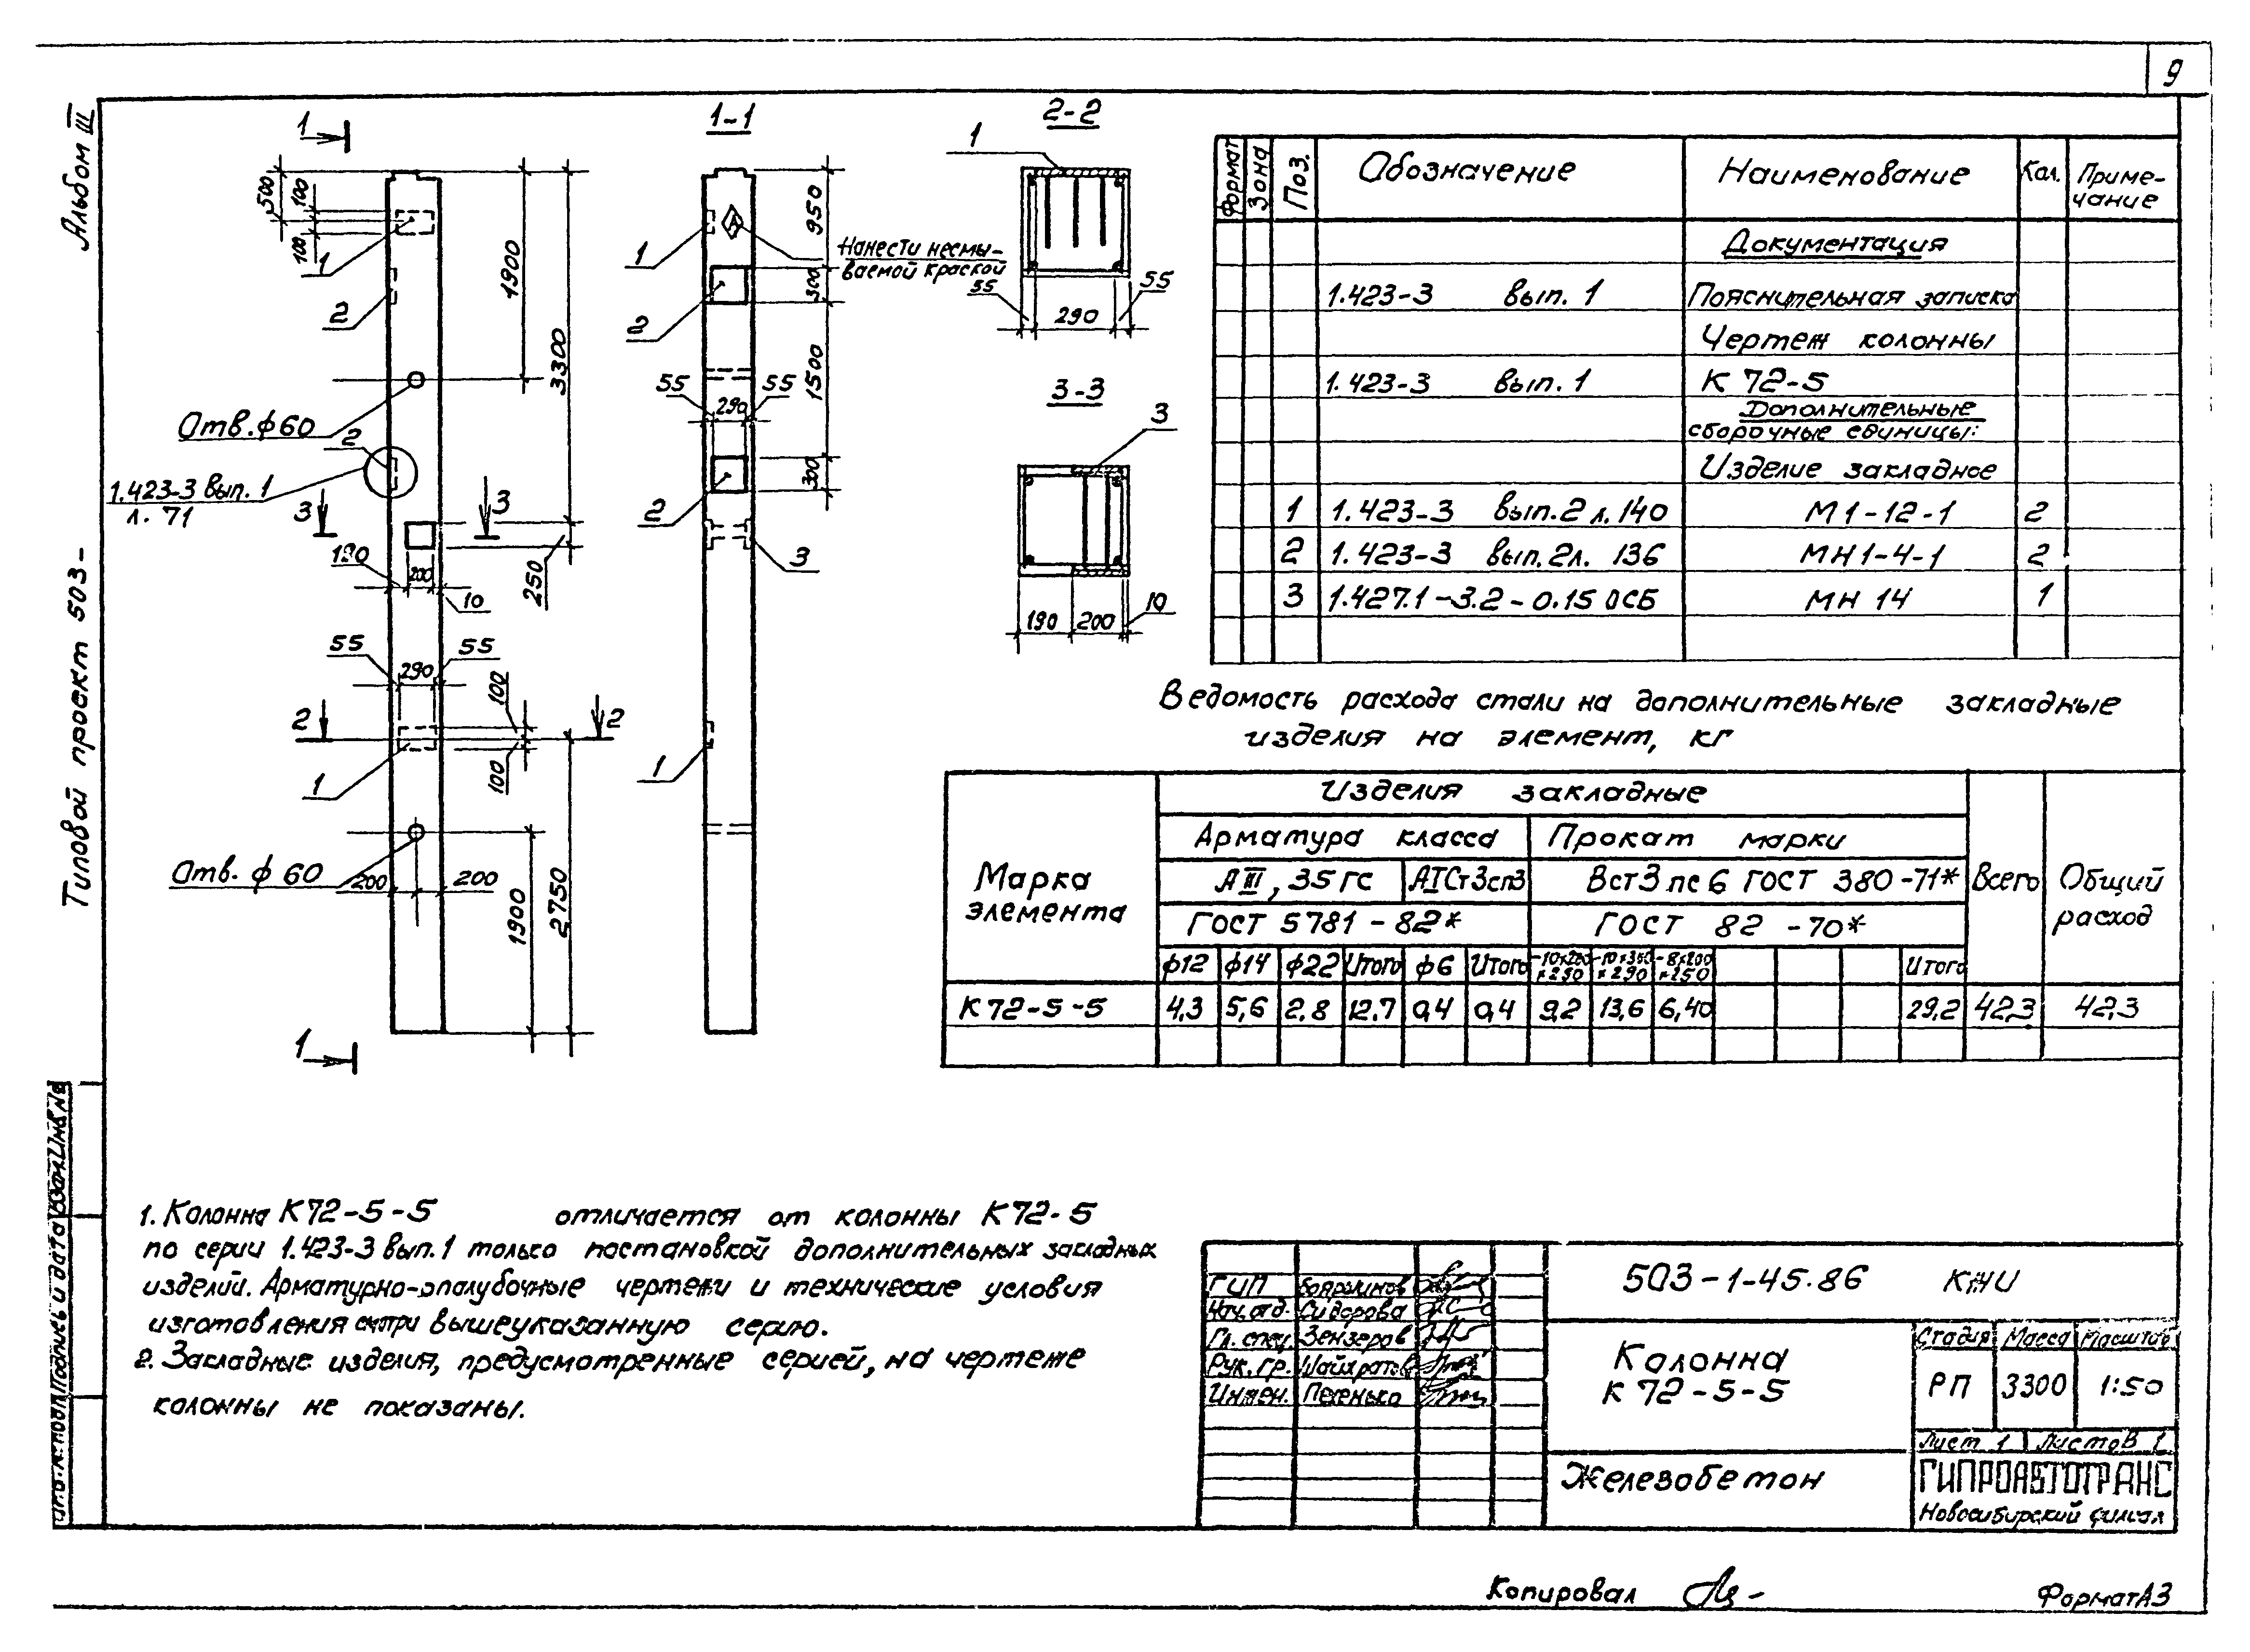 9
Альбом III
Типовой проект 503-
1
1-1
2-2
500
100
100
1
2
1900
3300
Отв. ф60
2
1.423-3 вып. 1
л. 71
3
3
190
200
10
250
55
290
55
100
100
2
2
1
Отв. ф 60
200
200
1900
2750
1
1
2
950
Нанести несмы-
ваемой краской
300
1500
55
290
55
300
2
3
1
1
55
290
55
3-3
3
190
200
10
Формат
Зона
Поз.
Обозначение
Наименование
Кол.
Приме-
чание
Документация
1.423-3 вып. 1 Пояснительная записка
Чертеж колонны
1.423-3 вып. 1 К 72-5
Дополнительные
сборочные единицы:
Изделие закладное
1 1.423-3 вып. 2 л. 140 М1-12-1 2
2 1.423-3 вып. 2 л. 136 МН1-4-1 2
3 1.427.1-3.2-0.15 ОСБ МН 14 1
Ведомость расхода стали на дополнительные закладные
изделия на элемент, кг
Марка
элемента
Изделия закладные
Арматура класса
Прокат марки
АIII, 35ГС
АIСт3сп3
ВСт3пс6 ГОСТ 380-71*
Всего
Общий
расход
ГОСТ 5781-82*
ГОСТ 82-70*
ф12 ф14 ф22 Итого ф6 Итого -10х200х290 -10х300х290 -8х200х250 Итого
К 72-5-5 4,3 5,6 2,8 12,7 0,4 0,4 9,2 13,6 6,40 29,2 42,3 42,3
1. Колонна К72-5-5 отличается от колонны К72-5
по серии 1.423-3 вып. 1 только постановкой дополнительных закладных
изделий. Арматурно-опалубочные чертежи и технические условия
изготовления смотри вышеуказанную серию.
2. Закладные изделия, предусмотренные серией, на чертеже
колонны не показаны.
503-1-45.86 КЖИ
ГИП
Нач. отд. Сидорова
Гл. спец. Зензеров
Рук. гр.
Инжен.
Колонна
К 72-5-5
Стадия Масса Масштаб
РП 3300 1:50
Лист 1 Листов 1
Железобетон
ГИПРОАВТОТРАНС
Новосибирский филиал
Инв. № подл. Подпись и дата Взам. Инв. №
Копировал
Формат А3